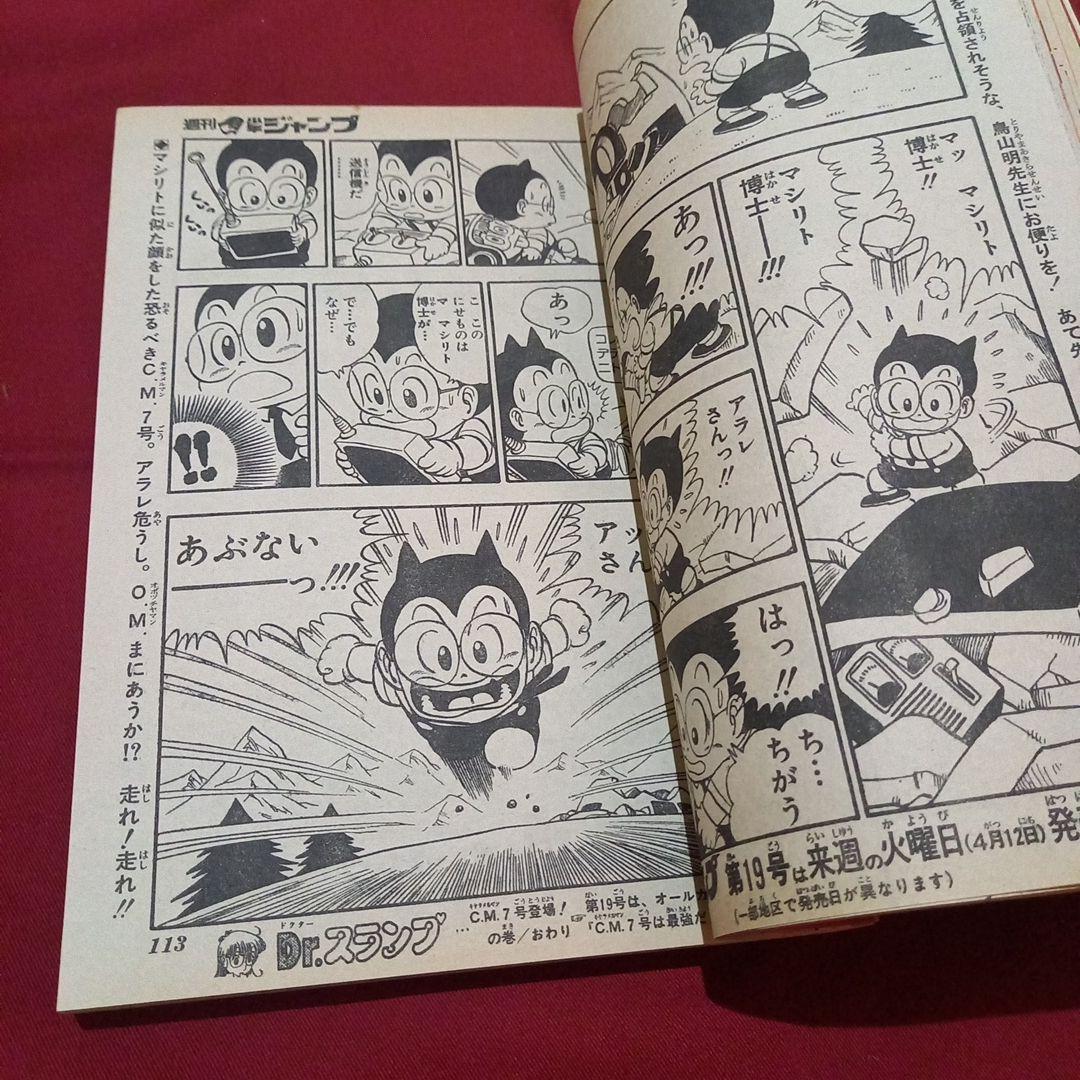 週刊少年ジャンプ
を占領されそうな、鳥山明先生にお便りを！
マッ
マシリト
博士!!
マシリト
博士――!!!
あっ!!!
アラレ
さんっ!!
はっ!!
ち…
ちがう
送信機だ
………
あっ
こ この
にせものは
マ マシリト
博士が…
で…でも
なぜ…
!!
あぶない
――っ!!!
◆マシリトに似た顔をした恐るべきC.M.7号。アラレ危うし。O.M.まにあうか!? 走れ！走れ!!
第19号は来週の火曜日(4月12日)発
(一部地区で発売日が異なります)
113
Dr.スランプ
ドクター
C.M.7号登場！
…の巻／おわり
第19号は、オールカ
『C.M.7号は最強だ